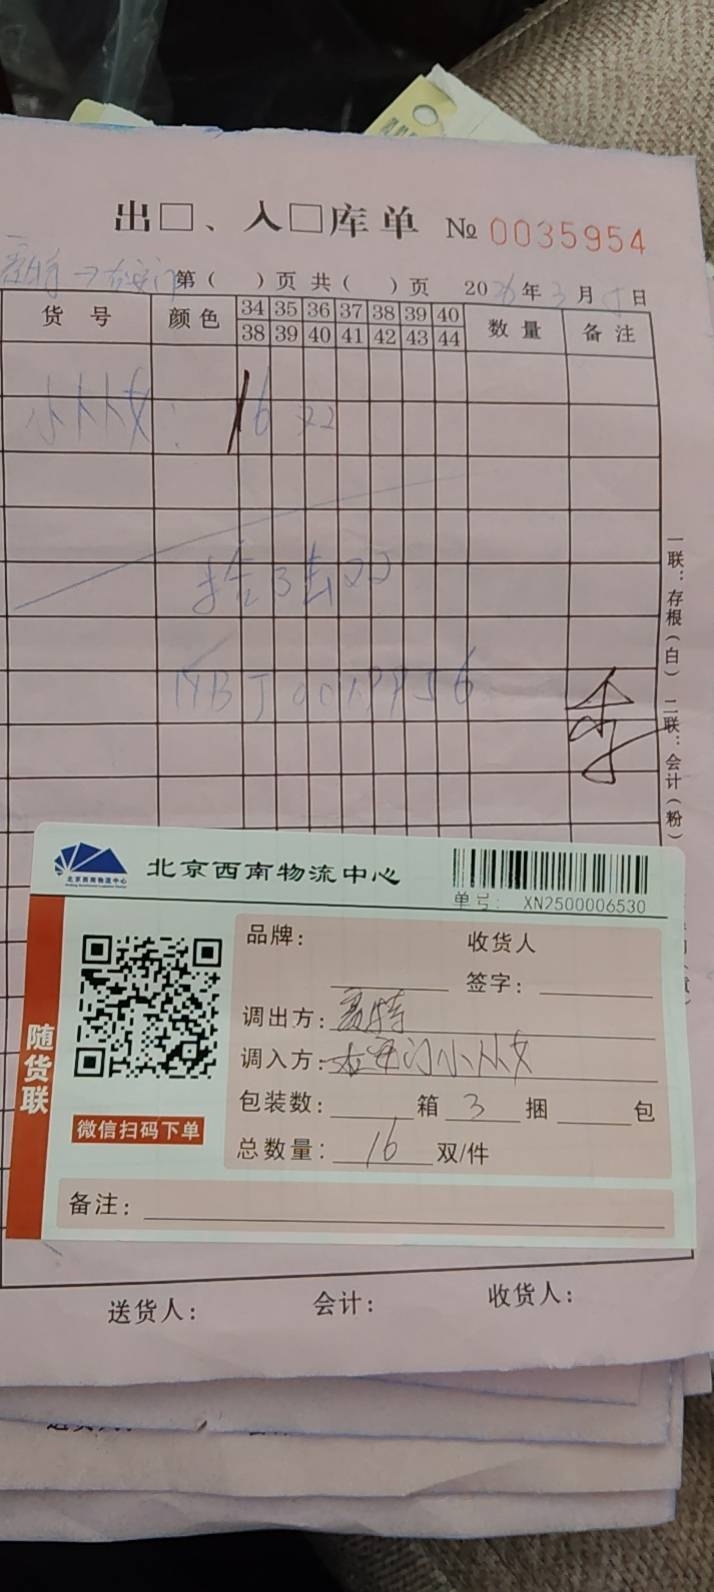 出□、入□库单 № 0035954
第( )页 共( )页 2026年3月 日
货号 颜色 34 35 36 37 38 39 40 数量 备注
38 39 40 41 42 43 44
小从女: 16双
拾3去双
一联:存根(白) 二联:会计(粉)
北京西南物流中心
北京西南物流中心
单号: XN2500006530
随货联
微信扫码下单
品牌: 收货人
签字:
调出方:
调入方:右安门小从女
包装数: 箱 3 捆 包
总数量: 16 双/件
备注:
送货人: 会计: 收货人: